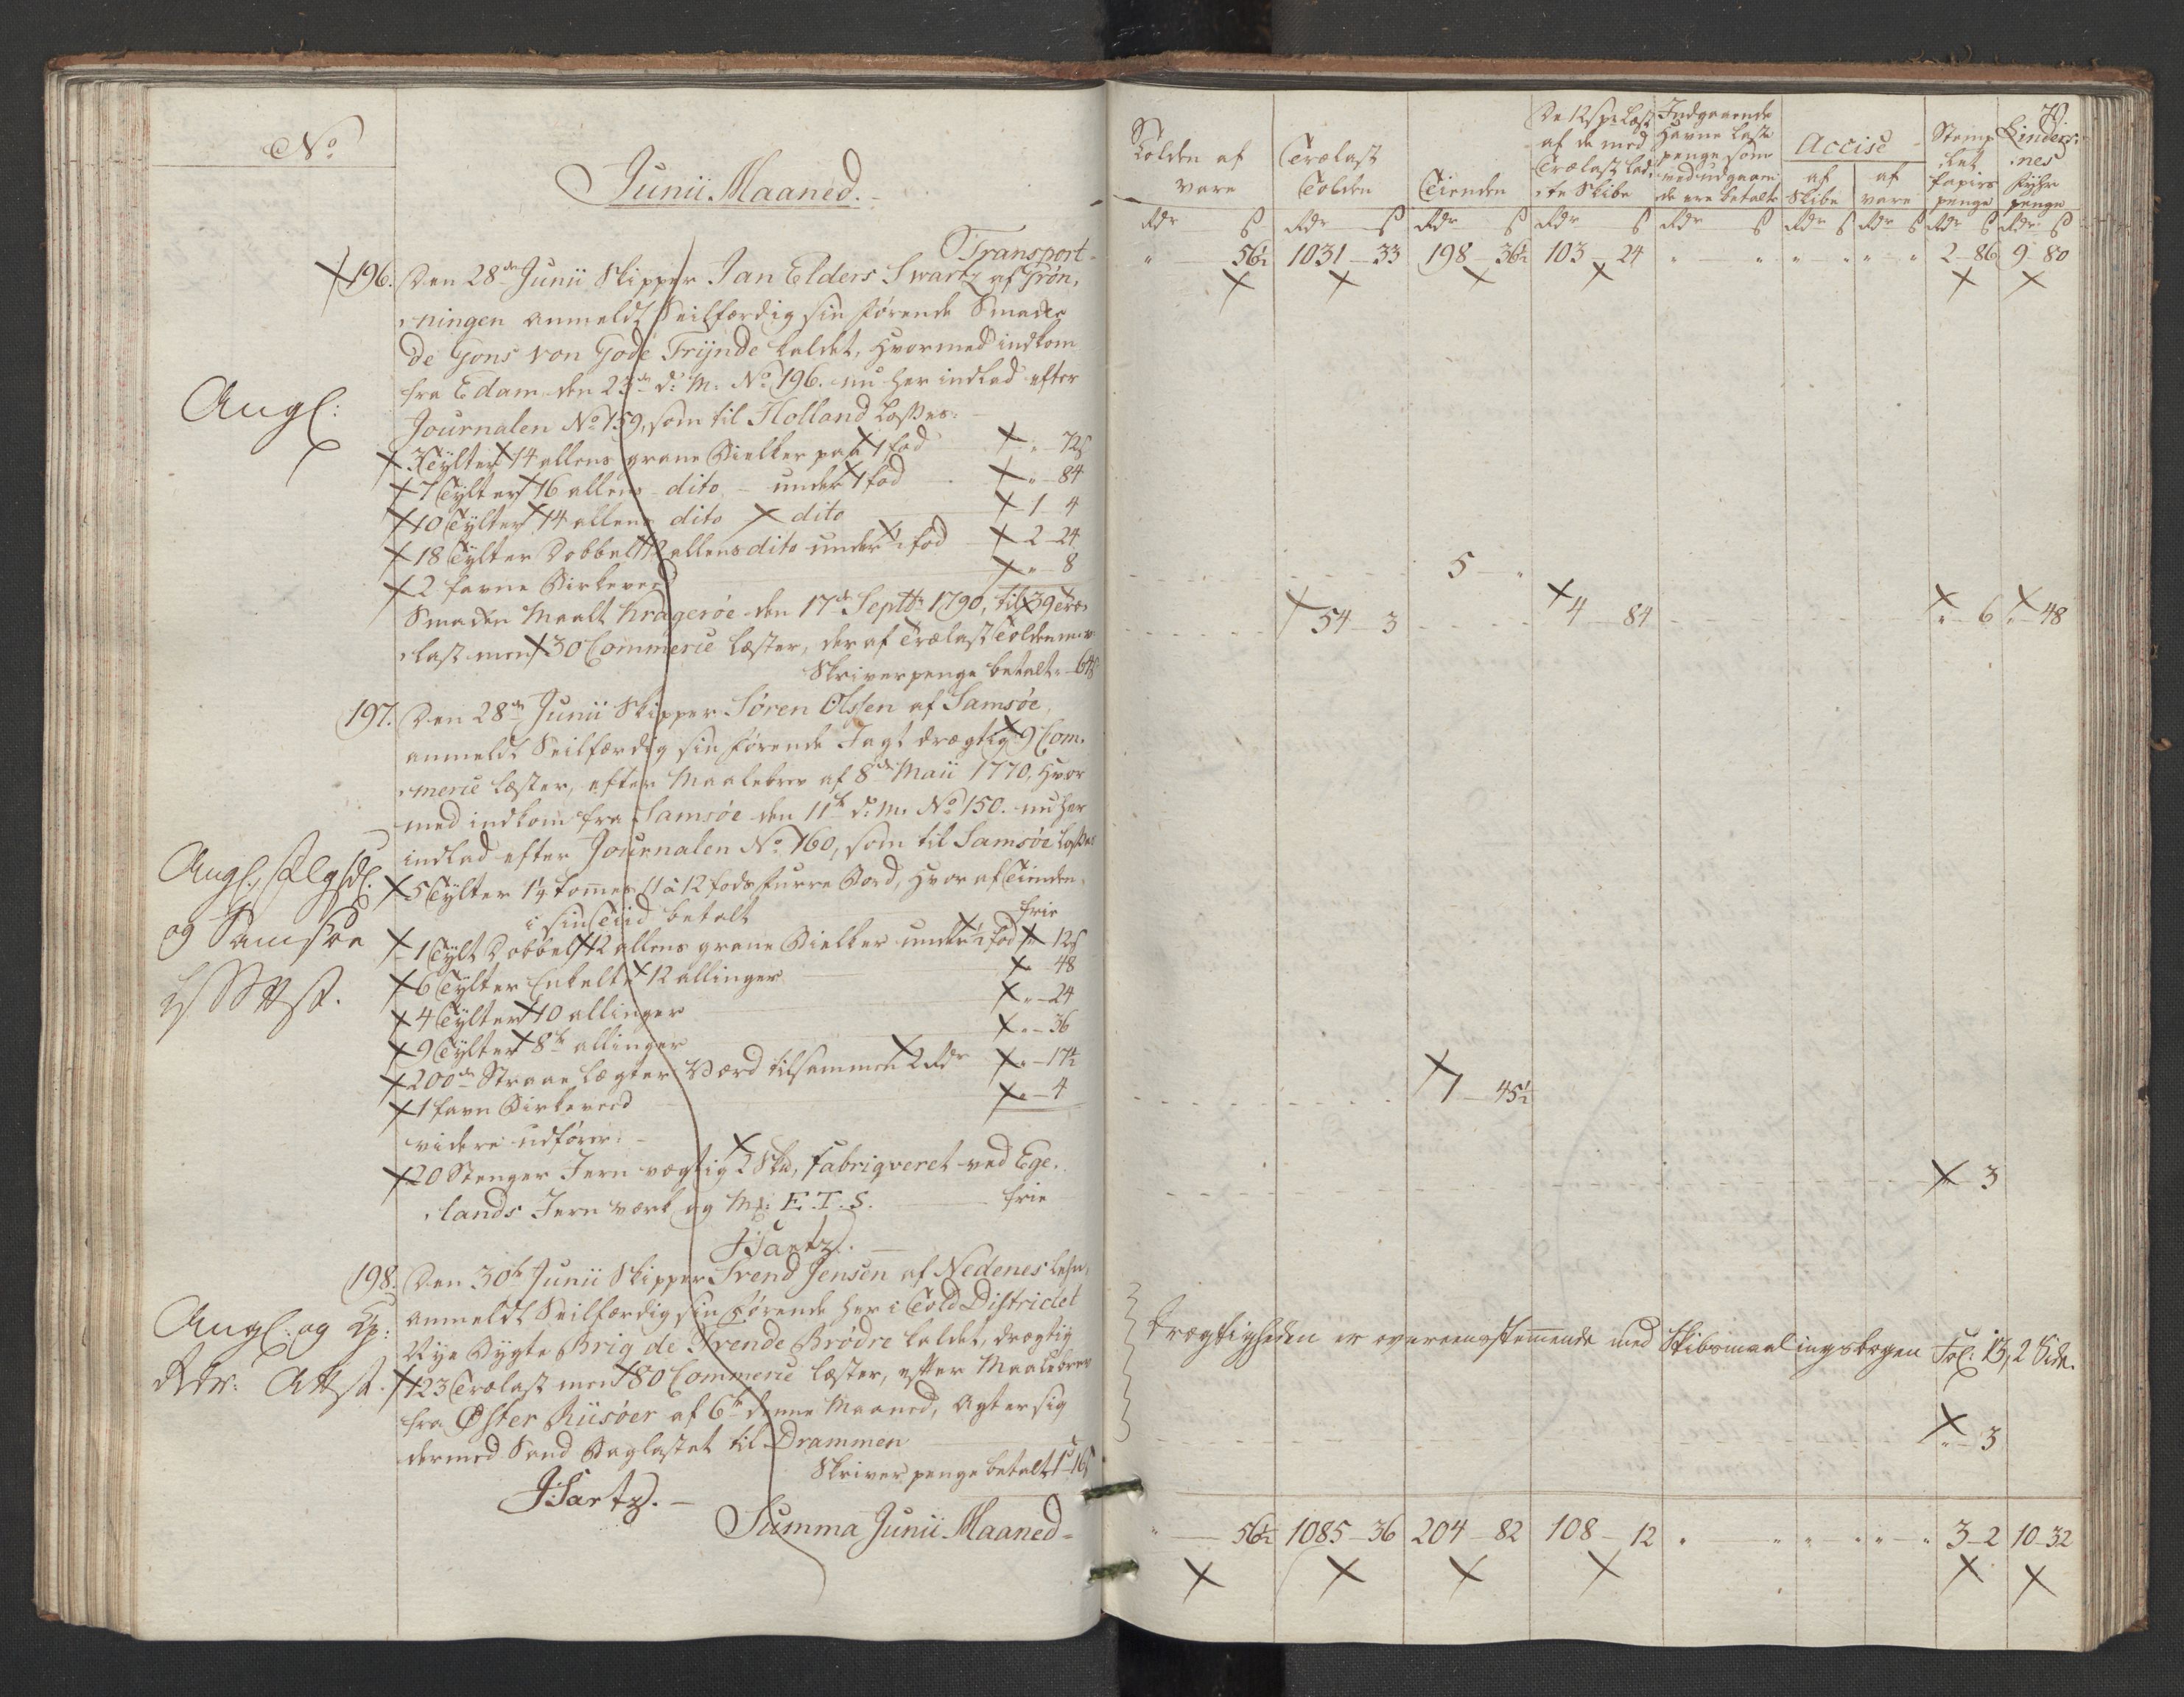 No
Junii Maaned.
Transport
196. Den 28de Junii Skipper Jan Elders Swartz af Grøn,
ningen anmeldt Seilfærdig sin førende Smakke
De Gons von Gode Frijnde kaldet, hvormed indkom
fra Edam den 23de d: M: No 196. nu her indlad efter
Angl:
Journalen No 159, som til Holland losses:
3 Tylter 14 allens grane Bielker paa 1 fod " 72 ß
7 Tylter 16 allens dito under 1 fod " 84
10 Tylter 14 allens dito dito 1 4
18 Tylter Dobbelt 12 allens dito under ½ fod 2 24
2 favne Birkeved " 8
Smakken Maalt Kragerøe den 17de Septbr 1790, til 39 Træ,
last men 30 Commerce Læster, der af Trælast Tolden m. v.
Skriverpenge betalt " 64 ß
197. Den 28de Junii Skipper Søren Olssen af Samsøe,
anmeldt Seilfærdig sin førende Jagt drægtig 9 Com,
merce Læster, efter Maalebrev af 8de Maii 1770, hvor
med indkom fra Samsøe den 11te d: M: No 150. nu her
indlad efter Journalen No 160, som til Samsøe losses
5 Tylter 1¼ tommes 11 à 12 fods furre Bord, hvoraf Tienden
i sin Tiid betalt frie
og Samsøe
1 Tylt Dobbelt 12 allens grane Bielker under ½ fod " 12 ß
6 Tylter Enkelte 12 allinger " 48
4 Tylter 10 allinger " 24
9 Tylter 8te allinger " 36
200de Straae Lægter Værd tilsammen 2 Rdr " 17½
1 favn Birkeved " 4
videre udfører:
20 Stænger Jern vægtig 2 Skd, fabriqveret ved Ege,
lands Jernværk og Mk: E. T. S. frie
JSartz.
198. Den 30te Junii Skipper Svend Jensen af Nedenes Lehn,
anmeldt Seilfærdig sin førende her i Told Districtet
Angl: og
Nye Bygte Brig de Trende Brødre kaldet, drægtig
Attst.
123 Trælast men 80 Commerce Læster, efter Maalebrev
fra Øster Riisøer af 6te denne Maaned, Agter sig
dermed Sand Baglastet til Drammen
Skriverpenge betalt 1 16 ß
JSartz.
Summa Junii Maaned
70.
Tolden af vare
Trælast Tolden
Tienden
De 12 ß pr Læst af de med Trælast lad, te Skibe
Indgaaende Havne Laste penge som ved udgaaen de ere betalte
Accise
af Skibe
af vare
Stemp let Papiirs penge
Linders, nes Fyhr penge
Rdr ß Rdr ß Rdr ß Rdr ß Rdr ß Rdr ß Rdr ß Rdr ß Rdr ß
" 56½ 1031 33 198 36½ 103 24 " " " " " " 2 86 9 80
5 "
54 3 4 84 " 6 " 48
1 45½
" 3
Drægtigheden er overeensstemmende med Skibsmaalingsbogen Fol: 13, 2 Side.
" 3
" 56½ 1085 36 204 82 108 12 " " " " " " 3 2 10 32